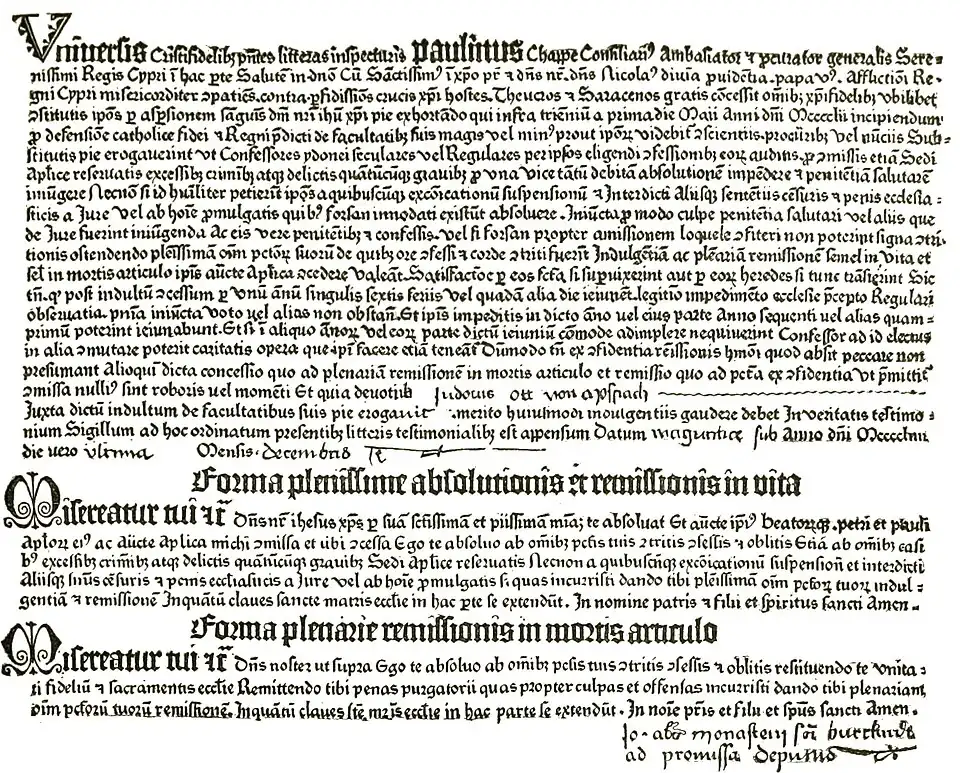 Vniuersis Cristifidelibꝫ pn̄tes litteras inspecturis Paulinus Chappe Consiliariꝰ Ambasiator ⁊ ꝓcurator generalis Sere⸗
nissimi Regis Cypri ī hac ꝑte Salutē in dn̄o Cū Sanctissimꝰ ī xp̄o pr̄ ⁊ dn̄s nr̄. dn̄s Nicolaꝰ diuīa ꝓuidētia. papa vꝰ. Afflictioī Re⸗
gni Cypri misericorditer ↄpatiēs. contra. ꝑfidissiōs crucis xp̄i hostes. Theucros ⁊ Saracenos gratis cōcessit om̄ibꝫ xp̄ifidelibꝫ vbilibet
ↄstitutis ip̄os ꝑ aspersionem sāguīs dn̄i nr̄i ih̄u xp̄i pie exhortādo qui infra trieniū a prima die Maii Anni dn̄i Mcccclii incipiendum
ꝓ defensiōe catholice fidei ⁊ Regni p̄dicti de facultatibꝫ suis magis vel minꝰ prout ip̄oꝝ videbit̄ ↄscientiis. procuribꝫ vel nūciis Sub⸗
stitutis pie erogauerint vt Confessores ydonei seculares vel Regulares per ip̄os eligendi ↄfessionibꝫ eoꝝ auditis. ꝓ ↄmissis etiā Sedi
Apl̄ice reseruatis excessibꝫ crimībꝫ atqꝫ delictis quātūcūqꝫ grauibꝫ ꝓ vna vice tātū debitā absolutionē impēdere ⁊ penitētiā salutarē
iniūgere Necnō si id hūiliter petierīt ip̄os a quibuscūqꝫ excōicationū suspensionū ⁊ Interdicti Aliisqꝫ sentētiis cēsuris ⁊ penis ecclesia⸗
sticis a Jure vel ab hoīe ꝓmulgatis quibꝰ forsan innodati existūt absoluere. Iniūcta ꝓ modo culpe penitētia salutari vel aliis que
de Jure fuerint iniūgenda Ac eis vere penitētibꝫ ⁊ confessis. vel si forsan propter amissionem loquele ↄfiteri non poterint signa ↄtri⸗
tionis ostendendo plenissimā om̄ petōꝝ suorū de quibꝫ ore ↄfessi ⁊ corde ↄtriti fuerīt Indulgētiā ac plenariā remissionē semel in vita et
sel̄ in mortis articulo ip̄is aūcte Apl̄ica ↄcedere valeāt. Satisfactōe ꝑ eos fcā si supuixerint aut ꝑ eoꝝ heredes si tunc trāsierint Sic
tn̄. qꝫ post indultū ↄcessum ꝑ vnū ānū singulis sextis feriis vel quadā alia die ieiunēt. legitīo impedimēto ecclesie p̄cepto Regulari
obseruātia. pn̄ia iniūcta voto vel alias non obstan̄. Et ip̄is impeditis in dicto āno vel eius parte Anno sequenti vel alias quam⸗
primū poterint ieiunabunt. Et si ī aliquo ānoꝝ vel eoꝝ parte dictū ieiuniū cōmode adimplere nequiuerint Confessor ad id electus
in alia ↄmutare poterit caritatis opera que ip̄i facere etiā teneāt̄ Dūmodo tn̄ ex ↄfidentia remissionis hmōi quod absit peccare non
presumant Alioqui dicta concessio quo ad plenariam remissionē in mortis articulo et remissio quo ad pctā ex ↄfidētia vt p̄mittit̄
ↄmissa nulliꝰ sint roboris vel momēti Et quia deuoti Judocus Ott von Apspach
Iuxta dictū indultum de facultatibus suis pie erogauit merito huiusmodi indulgentiis gaudere debet In veritatis testimo⸗
nium Sigillum ad hoc ordinatum presentibꝫ litteris testimonialibꝫ est appensum Datum maguntie sub Anno dn̄i Mccccliiii
die vero vltima Mensis decembris
Forma plenissime absolutionis et remissionis in vita
Misereatur tui ⁊c̄ Dn̄s nr̄ ihesus xp̄s ꝑ suā sctīssimā et piissimā mīaꝫ te absoluat Et aūcte ip̄iꝰ beatoruꝫqꝫ. petri et pauli
Apl̄oꝝ eiꝰ ac aūcte Apl̄ica michi ↄmissa et tibi ↄcessa Ego te absoluo ab om̄ibꝫ pctīs tuis ↄtritis ↄfessis ⁊ oblitis Etiā ab om̄ibꝫ casi
bꝰ excessibꝫ crimībꝫ atqꝫ delictis quātūcūqꝫ grauibꝫ Sedi Apl̄ice reseruatis Necnon a quibuscūqꝫ excōicationū suspensionū et interdicti
Aliisqꝫ sniīs cēsuris ⁊ penis ecclīasticis a Jure vel ab hoīe ꝓmulgatis si quas incurristi dando tibi plenissimā om̄ pctōꝝ tuoꝝ indul⸗
gentiā ⁊ remissionē Inquātū claues sancte matris ecclīe in hac ꝑte se extendūt. In nomine patris ⁊ filii et spiritus sancti Amen.
Forma plenarie remissionis in mortis articulo
Misereatur tui ⁊c̄ Dn̄s noster ut supra Ego te absoluo ab om̄ibꝫ pctīs tuis ↄtritis ↄfessis ⁊ oblitis restituendo te vnita⸗
ti fideliū ⁊ sacramentis ecclīe Remittendo tibi penas purgatorii quas propter culpas et offensas incurristi dando tibi plenariam
om̄ pctōrū tuorū remissionē. Inquātū claues scē mr̄is ecclīe in hac parte se extendūt. In noīe pr̄is et filii et spūs sancti Amen.
Jo. abbas monasterii sancti burckardi
ad premissa deputatus